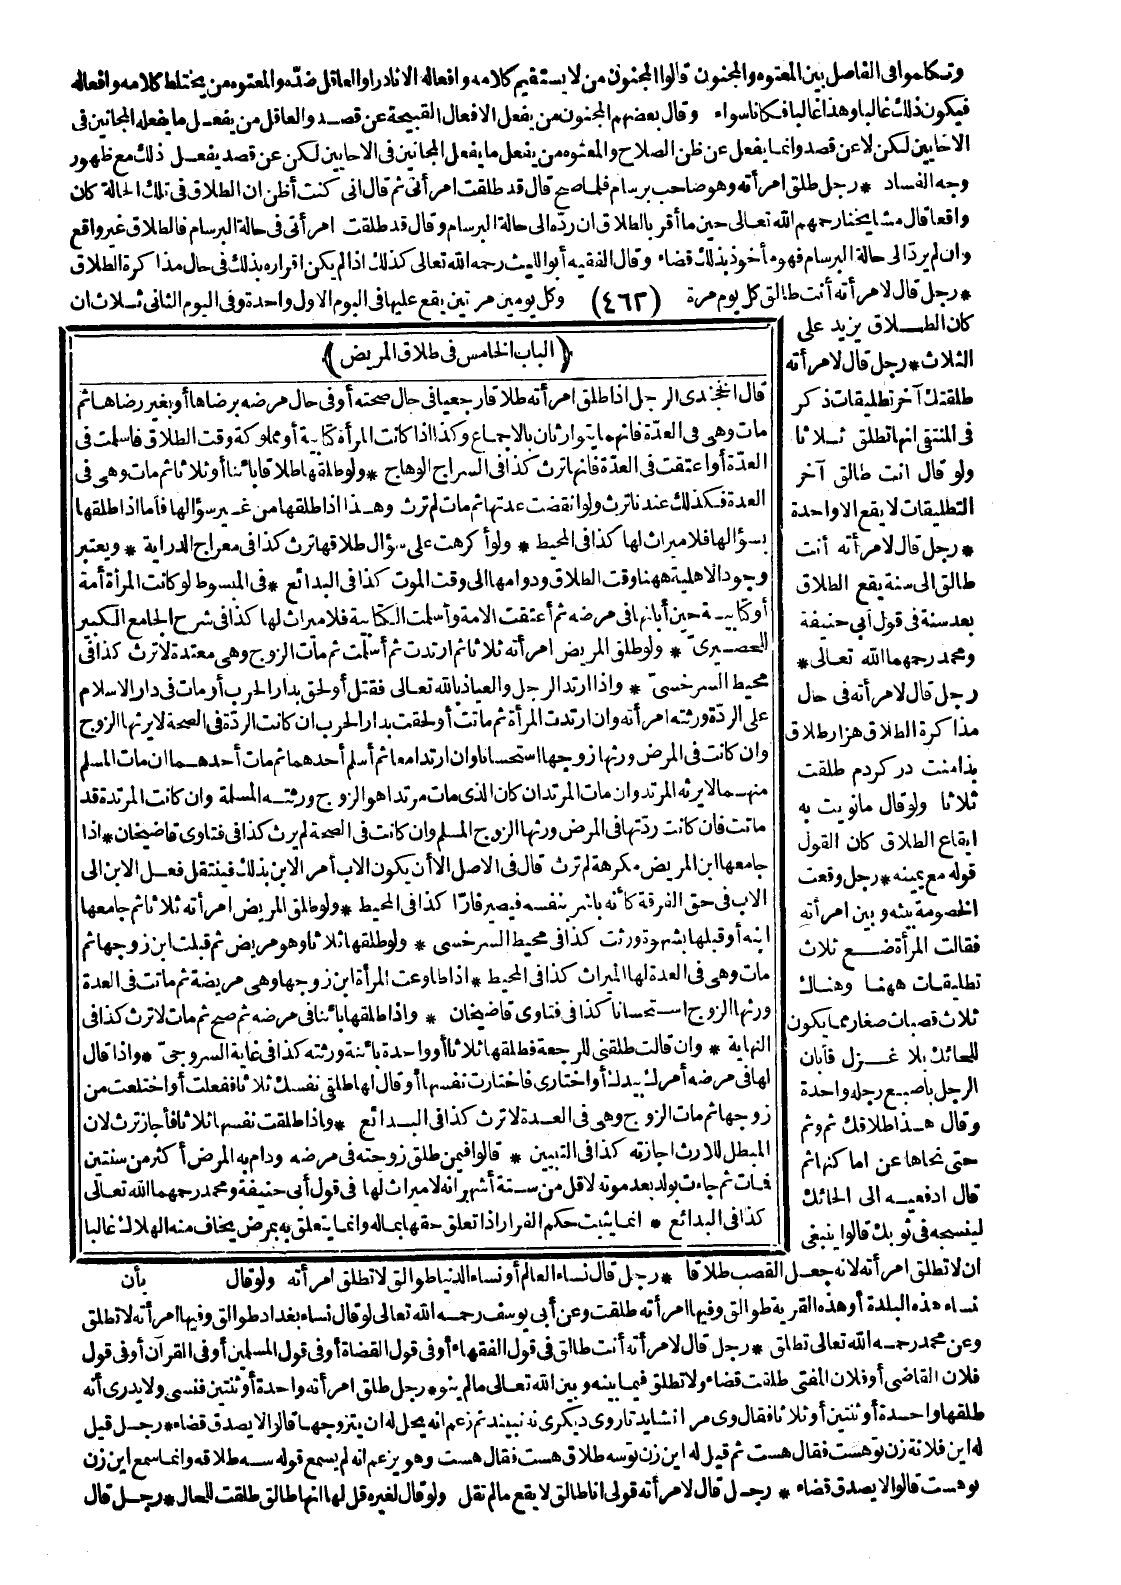 وتكلموا فى الفاصل بين المعتوه والمجنون قالوا المجنون من لا يستقيم كلامه وافعاله الا نادرا والعاقل ضده والمعتوه من يختلط كلامه وافعاله
فيكون ذلك غالبا وهذا غالبا فكانا سواء وقال بعضهم المجنون من يفعل الافعال القبيحة عن قصد والعاقل من يفعل ما يفعله المجانين فى
الاحايين لكن لا عن قصد وانما يفعل عن ظن الصلاح والمعتوه من يفعل ما يفعل المجانين فى الاحايين لكن عن قصد يفعل ذلك مع ظهور
وجه الفساد * رجل طلق امرأته وهو صاحب برسام فلما صح قال قد طلقت امرأتى ثم قال انى كنت أظن ان الطلاق فى تلك الحالة كان
واقعا قال مشايخنا رحمهم الله تعالى حين ما أقر بالطلاق ان رده الى حالة البرسام وقال قد طلقت امرأتى فى حالة البرسام فالطلاق غير واقع
وان لم يردّ الى حالة البرسام فهو مأخوذ بذلك قضاء وقال الفقيه أبو الليث رحمه الله تعالى كذلك اذا لم يكن اقراره بذلك فى حال مذاكرة الطلاق
* رجل قال لامرأته أنت طالق كل يوم مرة (٤٦٢) وكل يومين مرتين يقع عليها فى اليوم الاول واحدة وفى اليوم الثانى ثلاث ان
كان الطلاق يزيد على
الثلاث * رجل قال لامرأته
طلقتك آخر تطليقات ذكر
فى المنتقى انها تطلق ثلاثا
ولو قال انت طالق آخر
التطليقات لا يقع الا واحدة
* رجل قال لامرأته أنت
طالق الى سنة يقع الطلاق
بعد سنة فى قول أبى حنيفة
ومحمد رحمهما الله تعالى *
رجل قال لامرأته فى حال
مذاكرة الطلاق هزار طلاق
بدامنت در كردم طلقت
ثلاثا ولو قال ما نويت به
ايقاع الطلاق كان القول
قوله مع يمينه * رجل وقعت
الخصومة بينه وبين امرأته
فقالت المرأة ضع ثلاث
تطليقات ههنا وهناك
ثلاث قصبات صغار مما يكون
للحائك بلا غزل فأبان
الرجل بأصبع رجله واحدة
وقال هذا طلاقك ثم وثم
حتى نحاها عن اماكنها ثم
قال ادفعيه الى الحائك
لينسجه فى ثوبك قالوا ينبغى
(الباب الخامس فى طلاق المريض)
قال الخجندى الرجل اذا طلق امرأته طلاقا رجعيا فى حال صحته أو فى حال مرضه برضاها أو بغير رضاها ثم
مات وهى فى العدّة فانهما يتوارثان بالاجماع وكذا اذا كانت المرأة كتابية أو مملوكة وقت الطلاق فاسلمت فى
العدّة أو اعتقت فى العدّة فانها ترث كذا فى السراج الوهاج * ولو طلقها طلاقا بائنا أو ثلاثا ثم مات وهى فى
العدة فكذلك عندنا ترث ولو انقضت عدتها ثم مات لم ترث وهذا اذا طلقها من غير سؤالها فأما اذا طلقها
بسؤالها فلا ميراث لها كذا فى المحيط * ولو أكرهت على سؤال طلاقها ترث كذا فى معراج الدراية * ويعتبر
وجود الاهلية ههنا وقت الطلاق ودوامها الى وقت الموت كذا فى البدائع * فى المبسوط لو كانت المرأة أمة
أو كتابية حين أبانها فى مرضه ثم أعتقت الامة وأسلمت الكتابية فلا ميراث لها كذا فى شرح الجامع الكبير
الحصيرىّ * ولو طلق المريض امرأته ثلاثا ثم ارتدت ثم أسلمت ثم مات الزوج وهى معتدة لا ترث كذا فى
محيط السرخسىّ * واذا ارتد الرجل والعياذ بالله تعالى فقتل أو لحق بدار الحرب أو مات فى دار الاسلام
على الردّة ورثته امرأته وان ارتدت المرأة ثم ماتت أو لحقت بدار الحرب ان كانت الردّة فى الصحة لا يرثها الزوج
وان كانت فى المرض ورثها زوجها استحسانا وان ارتدا معا ثم أسلم أحدهما ثم مات أحدهما ان مات المسلم
منهما لا يرثه المرتد وان مات المرتد ان كان الذى مات مرتدا هو الزوج ورثته المسلمة وان كانت المرتدة قد
ماتت فان كانت ردّتها فى المرض ورثها الزوج المسلم وان كانت فى الصحة لم يرث كذا فى فتاوى قاضيخان * اذا
جامعها ابن المريض مكرهة لم ترث قال فى الاصل الا أن يكون الاب أمر الابن بذلك فينتقل فعل الابن الى
الاب فى حق الفرقة كأنه باشر بنفسه فيصير فارّا كذا فى المحيط * ولو طلق المريض امرأته ثلاثا ثم جامعها
ابنه أو قبلها بشهوة ورثت كذا فى محيط السرخسى * ولو طلقها ثلاثا وهو مريض ثم قبلت ابن زوجها ثم
مات وهى فى العدة لها الميراث كذا فى المحيط * اذا طاوعت المرأة ابن زوجها وهى مريضة ثم ماتت فى العدة
ورثها الزوج استحسانا كذا فى فتاوى قاضيخان * واذا طلقها بائنا فى مرضه ثم صح ثم مات لا ترث كذا فى
النهاية * وان قالت طلقنى للرجعة فطلقها ثلاثا أو واحدة بائنة ورثته كذا فى غاية السروجىّ * واذا قال
لها فى مرضه أمرك بيدك أو اختارى فاختارت نفسها أو قال لها طلقى نفسك ثلاثا ففعلت أو اختلعت من
زوجها ثم مات الزوج وهى فى العدة لا ترث كذا فى البدائع * واذا طلقت نفسها ثلاثا فأجاز ترث لان
المبطل للارث اجازته كذا فى التبيين * قالوا فيمن طلق زوجته فى مرضه ودام به المرض أكثر من سنتين
فمات ثم جاءت بولد بعد موته لاقل من ستة أشهر انه لا ميراث لها فى قول أبى حنيفة ومحمد رحمهما الله تعالى
كذا فى البدائع * انما يثبت حكم الفرار اذا تعلق حقها بماله وانما يتعلق به بمرض يخاف منه الهلاك غالبا
ان لا تطلق امرأته لانه جعل القصب طلاقا * رجل قال نساء العالم أو نساء الدنيا طوالق لا تطلق امرأته ولو قال بأن
نساء هذه البلدة أو هذه القرية طوالق وفيها امرأته طلقت وعن أبى يوسف رحمه الله تعالى لو قال نساء بغداد طوالق وفيها امرأته لا تطلق
وعن محمد رحمه الله تعالى تطلق * رجل قال لامرأته أنت طالق فى قول الفقهاء أو فى قول القضاة أو فى قول المسلمين أو فى القرآن أو فى قول
فلان القاضى أو فلان المفتى طلقت قضاء ولا تطلق فيما بينه وبين الله تعالى ما لم ينو * رجل طلق امرأته واحدة أو ثنتين فنسى ولا يدرى أنه
طلقها واحدة أو ثنتين أو ثلاثا فقال وى مرا نشايد تا روى ديكرى نه بيند ثم زعم انه يحل له ان يتزوجها قالوا لا يصدق قضاء * رجل قيل
له اين فلانة زن تو هست فقال هست ثم قيل له اين زن تو سه طلاق هست فقال هست وهو يزعم انه لم يسمع قوله سه طلاقه وانما سمع اين زن
تو هست قالوا لا يصدق قضاء * رجل قال لامرأته قولى انا طالق لا يقع ما لم تقل ولو قال لغيره قل لها انها طالق طلقت للحال * رجل قال